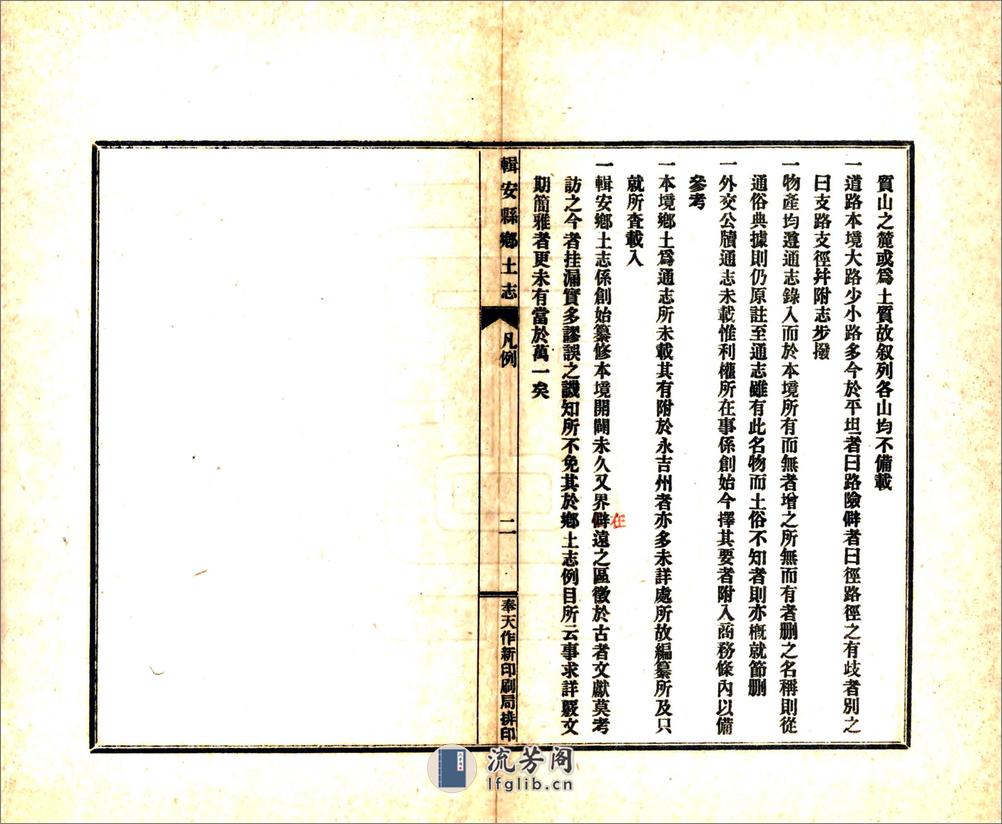 質山之麓或爲土質故叙列各山均不備載
一道路本境大路少小路多今於平坦者曰路險僻者曰徑路徑之有歧者別之
曰支路支徑幷附志步撥
一物產均遵通志錄入而於本境所有而無者增之所無而有者删之名稱則從
通俗典據則仍原註至通志雖有此名物而土俗不知者則亦槪就節删
一外交公牘通志未載惟利權所在事係創始今擇其要者附入商務條內以備
參考
一本境鄉土爲通志所未載其有附於永吉州者亦多未詳處所故編纂所及只
就所查載入
一輯安鄉土志係創始纂修本境開闢未久又界僻遠之區徵於古者文獻莫考
在
訪之今者挂漏實多謬誤之譏知所不免其於鄉土志例目所云事求詳覈文
期簡雅者更未有當於萬一矣
輯安縣鄉土志 凡例 二 奉天作新印刷局排印
流芳阁
lfglib.cn